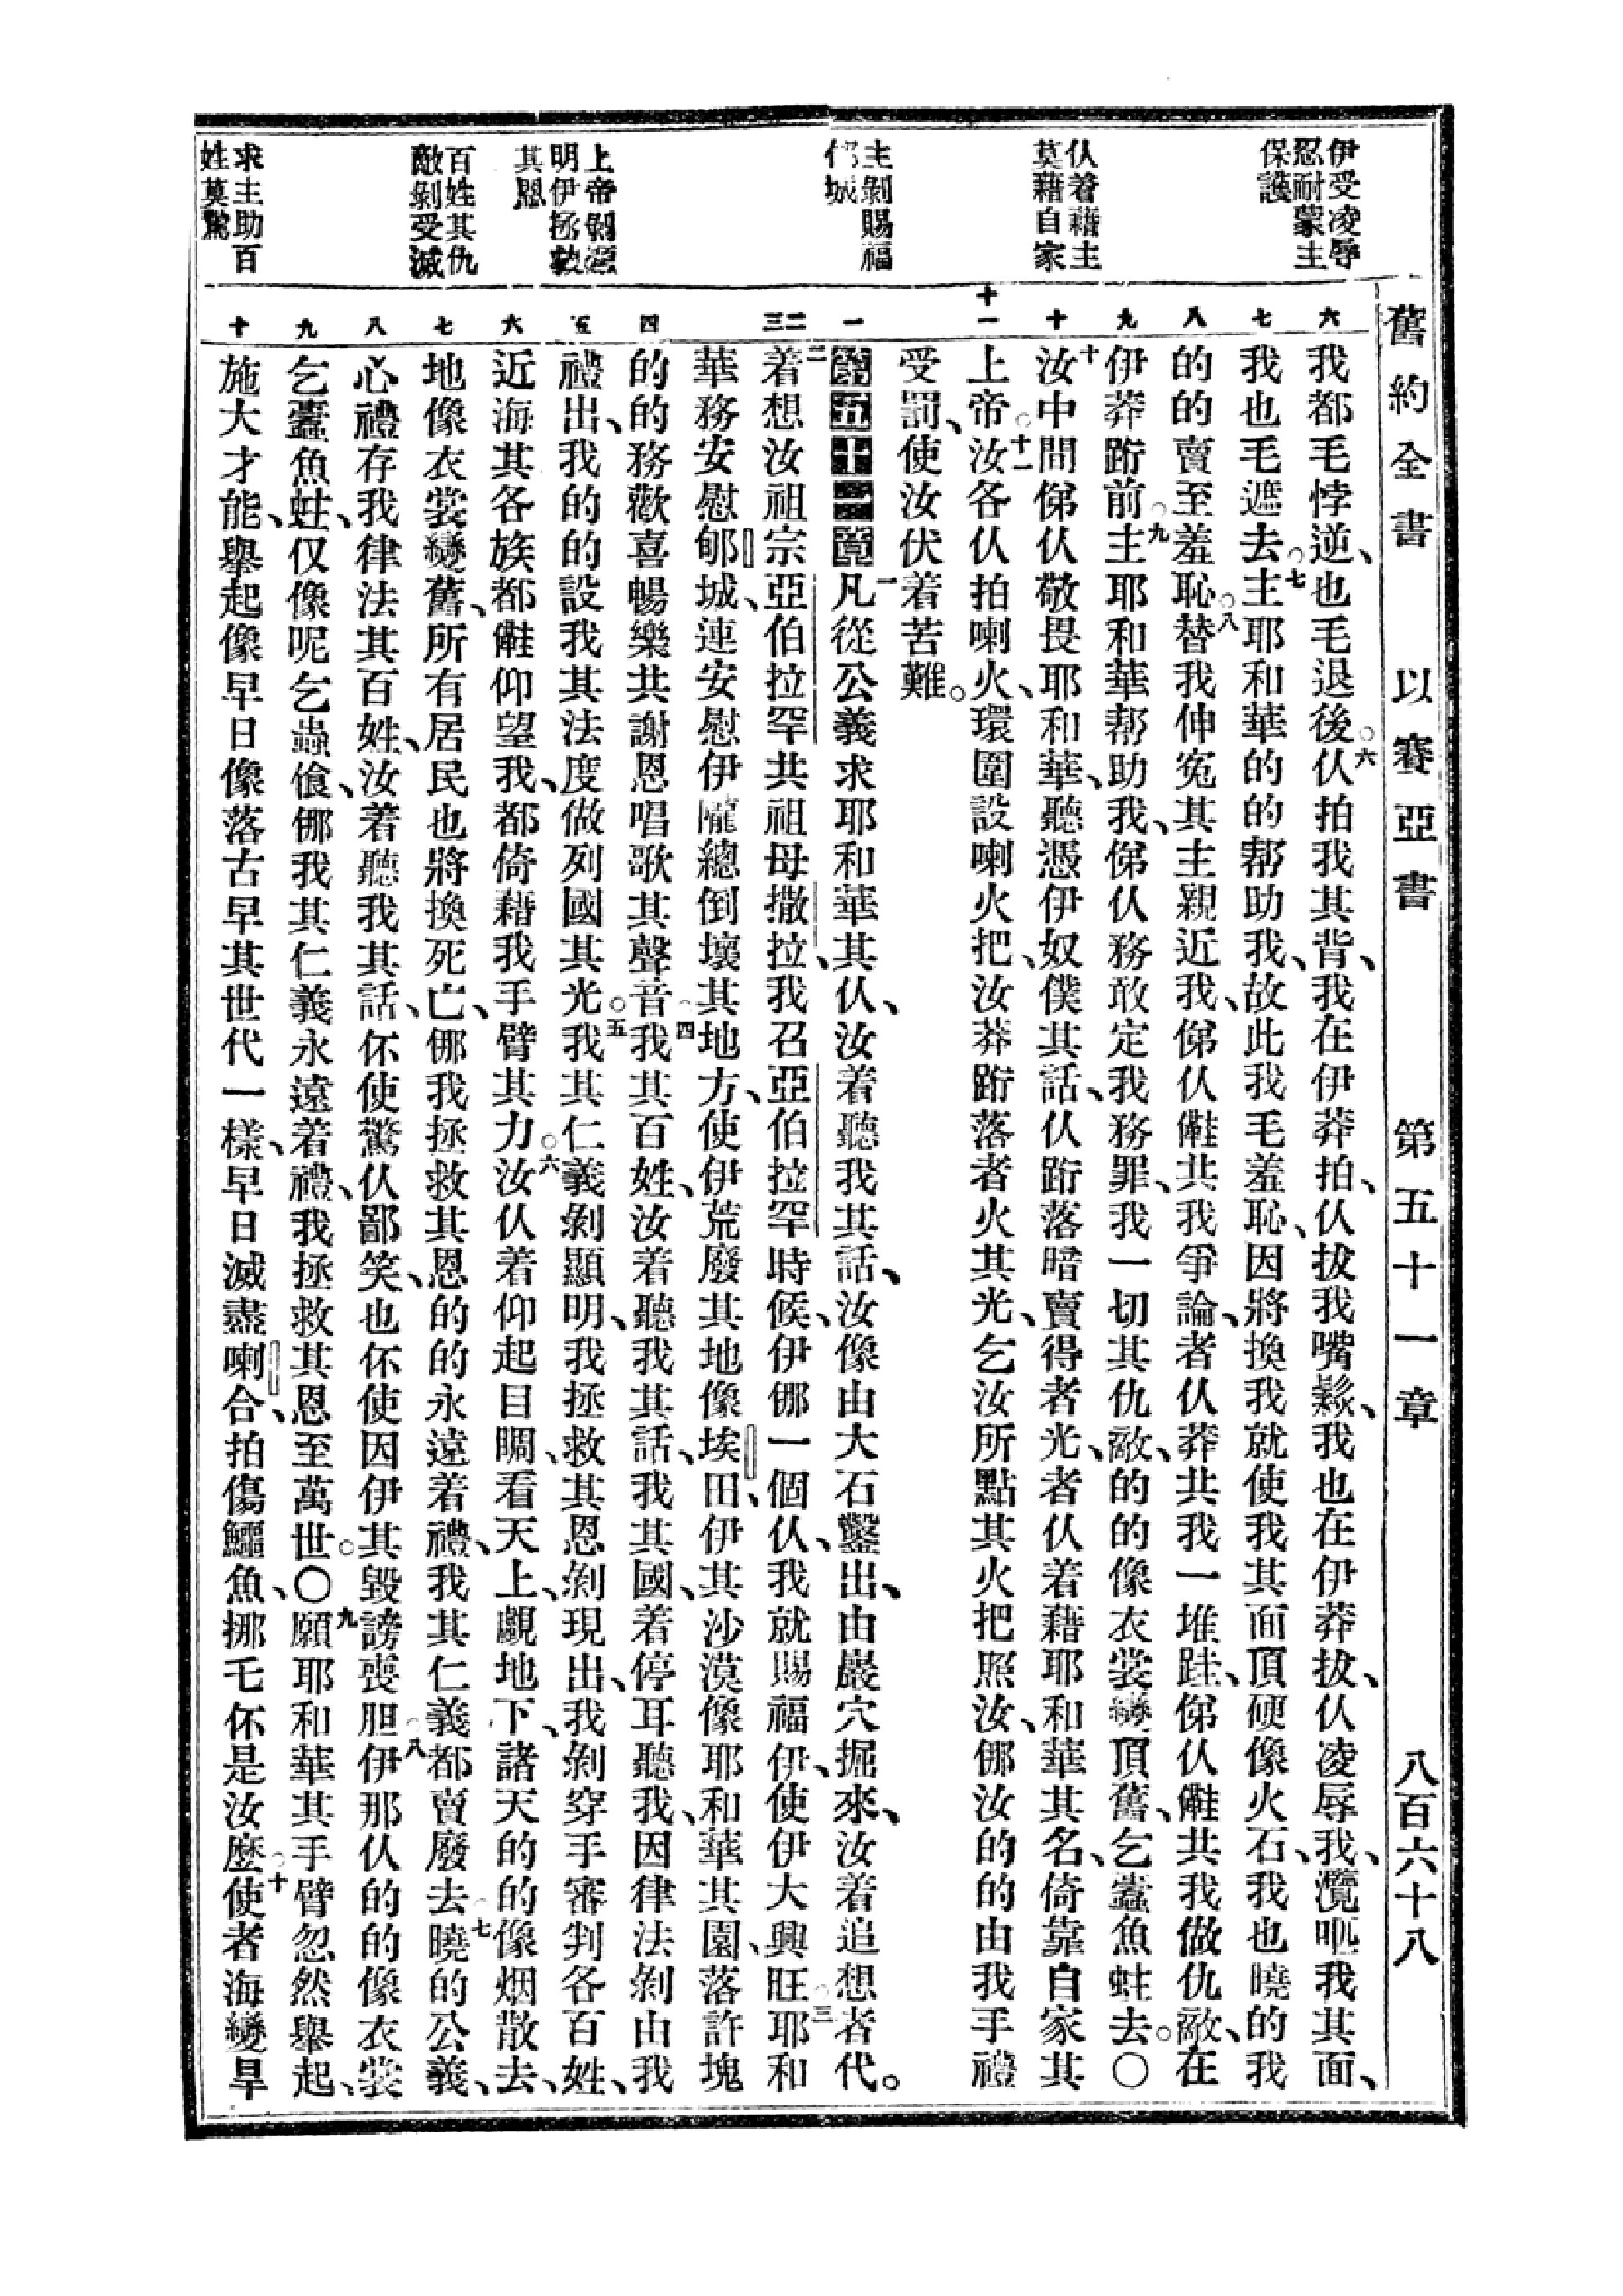 舊約全書 以賽亞書 第五十一章 八百六十八
伊受凌辱
忍耐蒙主
保護
仈着藉主
莫藉自家
主剝賜福
郇城
上帝剝顯
明伊拯救
其恩
百姓其仇
敵剝受滅
求主助百
姓莫驚
六
七
八
九
十
十一
一
二三
四
五
六
七
八
九
十
我都毛悖逆、也毛退後○六仈拍我其背、我在伊莽拍、仈拔我嘴鬚、我也在伊莽拔、仈凌辱我、瀾呸我其面、
我也毛遮去○七主耶和華的的幫助我、故此我毛羞恥、因將換我就使我其面頂硬像火石、我也曉的我
的的賣至羞恥○八替我伸寃其主親近我、俤仈儺共我爭論、者仈莽共我一堆跬、俤仈儺共我做仇敵、在
伊莽跲前○九主耶和華幫助我、俤仈務敢定我務罪、我一切其仇敵、的的像衣裳變頂舊、乞蠹魚蛀去。○
十汝中間俤仈敬畏耶和華、聽憑伊奴僕其話、仈跲落暗賣得者光、者仈着藉耶和華其名、倚靠自家其
上帝○十一汝各仈拍喇火、環圍設喇火把、汝莽跲落者火其光、乞汝所點其火把照汝、㑚汝的的由我手禮
受罰、使汝伏着苦難。
第五十一章一凡從公義求耶和華其仈、汝着聽我其話、汝像由大石鑿出、由巖穴掘來、汝着追想者代。
二着想汝祖宗亞伯拉罕共祖母撒拉、我召亞伯拉罕時候、伊㑚一個仈、我就賜福伊、使伊大興旺○三耶和
華務安慰郇城、連安慰伊隴總倒壞其地方、使伊荒廢其地像埃田、伊其沙漠像耶和華其園、落許塊
的的務歡喜暢樂共謝恩唱歌其聲音○四我其百姓、汝着聽我其話、我其國、着停耳聽我、因律法剝由我
禮出、我的的設我其法度做列國其光○五我其仁義剝顯明、我拯救其恩剝現出、我剝穿手審判各百姓、
近海其各族都儺仰望我、都倚藉我手臂其力○六汝仈着仰起目睭、看天上、覷地下、諸天的的像烟散去、
地像衣裳變舊、所有居民也將換死亡、㑚我拯救其恩的的永遠着禮、我其仁義都賣廢去○七曉的公義、
心禮存我律法其百姓、汝着聽我其話、伓使驚仈鄙笑、也伓使因伊其毀謗喪胆○八伊那仈的的像衣裳
乞蠹魚蛀、仅像呢乞蟲飡、㑚我其仁義永遠着禮、我拯救其恩至萬世。○九願耶和華其手臂忽然舉起、
施大才能、舉起像早日像落古早其世代一樣、早日滅盡喇合、拍傷鱷魚、挪乇伓是汝麽○十使者海變旱